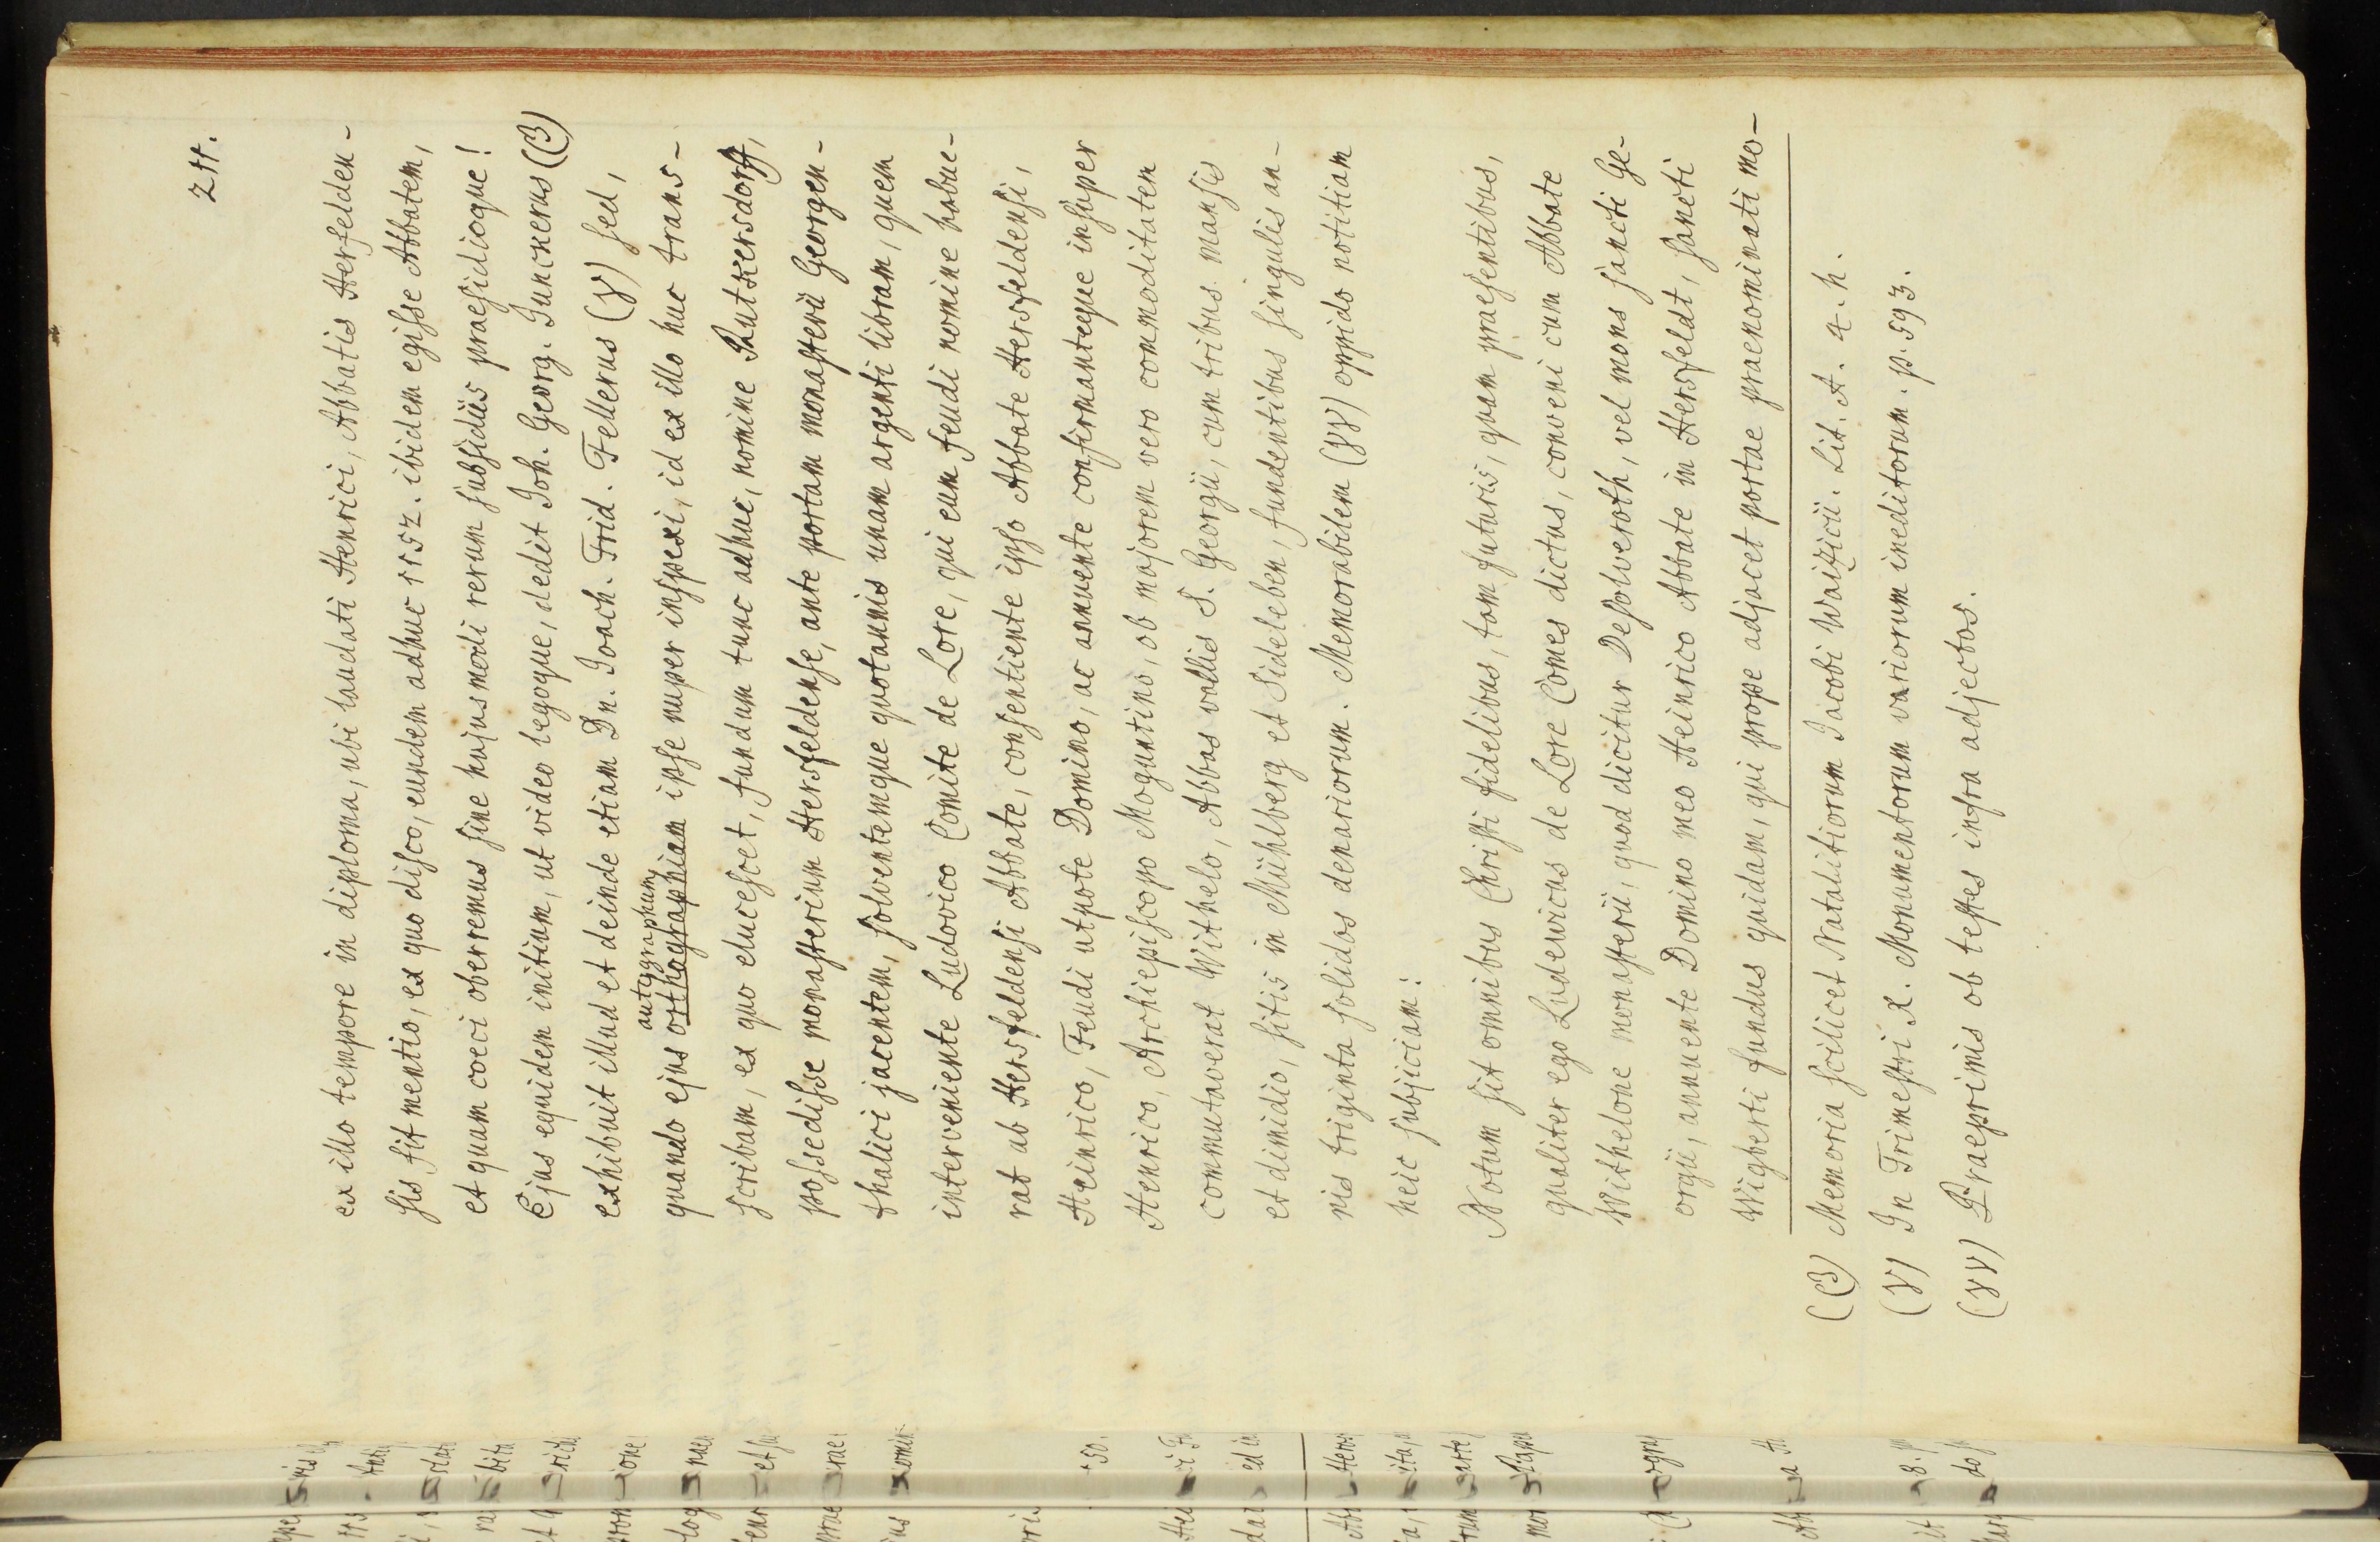 211.
ex illo tempore in diploma, ubi laudati Henrici, Abbatis Herfelden-
sis fit mentio, ex quo disco, eundem adhuc 1152. ibidem egisse Abbatem,
et quam coeci oberremus sine hujusmodi rerum subsidiis praesidioque!
Ejus equidem initium, ut video legoque, dedit Joh. Georg. Junckerus (β)
exhibuit illud et deinde etiam Dn. Joach. Frid. Fellerus (γ) sed,
autographum
quando ejus orthographiam ipse nuper inspexi, id ex illo huc trans-
scribam, ex quo elucescet, fundum tunc adhuc, nomine Rutkersdorff,
possedisse monasterium Hersfeldense, ante portam monasterii Georgen-
thalici jacentem, solventemque quotannis unam argenti libram, quem
interveniente Ludovico Comite de Lore, qui eum feudi nomine habue-
rat ab Hersfeldensi Abbate, consentiente ipso Abbate Hersfeldensi,
Heinrico, Feudi utpote Domino, ac annuente confirmanteque insuper
Henrico, Archiepiscopo Moguntino, ob majorem vero commoditatem
commutaverat Withelo, Abbas vallis S. Georgii, cum tribus mansis
et dimidio, sitis in Mühlberg et Sideleben, fundentibus singulis an-
nis triginta solidos denariorum. Memorabilem (γγ) oppido notitiam
heic subjiciam:
Notum sit omnibus Christi fidelibus, tam futuris, quam praesentibus,
qualiter ego Ludewicus de Lore Comes dictus, conveni cum Abbate
Withelone monasterii, quod dicitur Desolveroth, vel mons sancti Ge-
orgii, annuente Domino meo Heinrico Abbate in Hersfeldt, sancti
Wigberti fundus quidam, qui prope adjacet portae praenominati mo-
(β) Memoria scilicet Natalitiorum Jacobi Waizicii. Lit. A. 4. h.
(γ) In Trimestri X. Monumentorum variorum ineditorum. p. 593.
(γγ) Praeprimis ob testes infra adjectos.